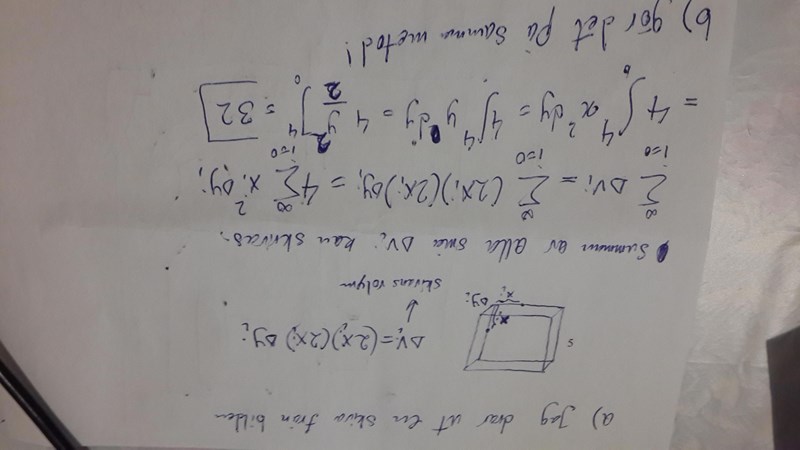 a) Jag drar ut en skiva från bilden
s
x_i
x_i
Δy_i
ΔV_i = (2x_i)(2x_i) Δy_i
↓
skivens volym
• Summan av alla små ΔV_i kan skrivas.
∑_{i=0}^{∞} ΔV_i = ∑_{i=0}^{∞} (2x_i)(2x_i) Δy_i = 4 ∑_{i=0}^{∞} x_i^2 Δy_i
= 4 ∫_0^4 x^2 dy = 4 ∫_0^4 y dy = 4 [y^2/2]_0^4 = 32
b) gör det på samma metod!